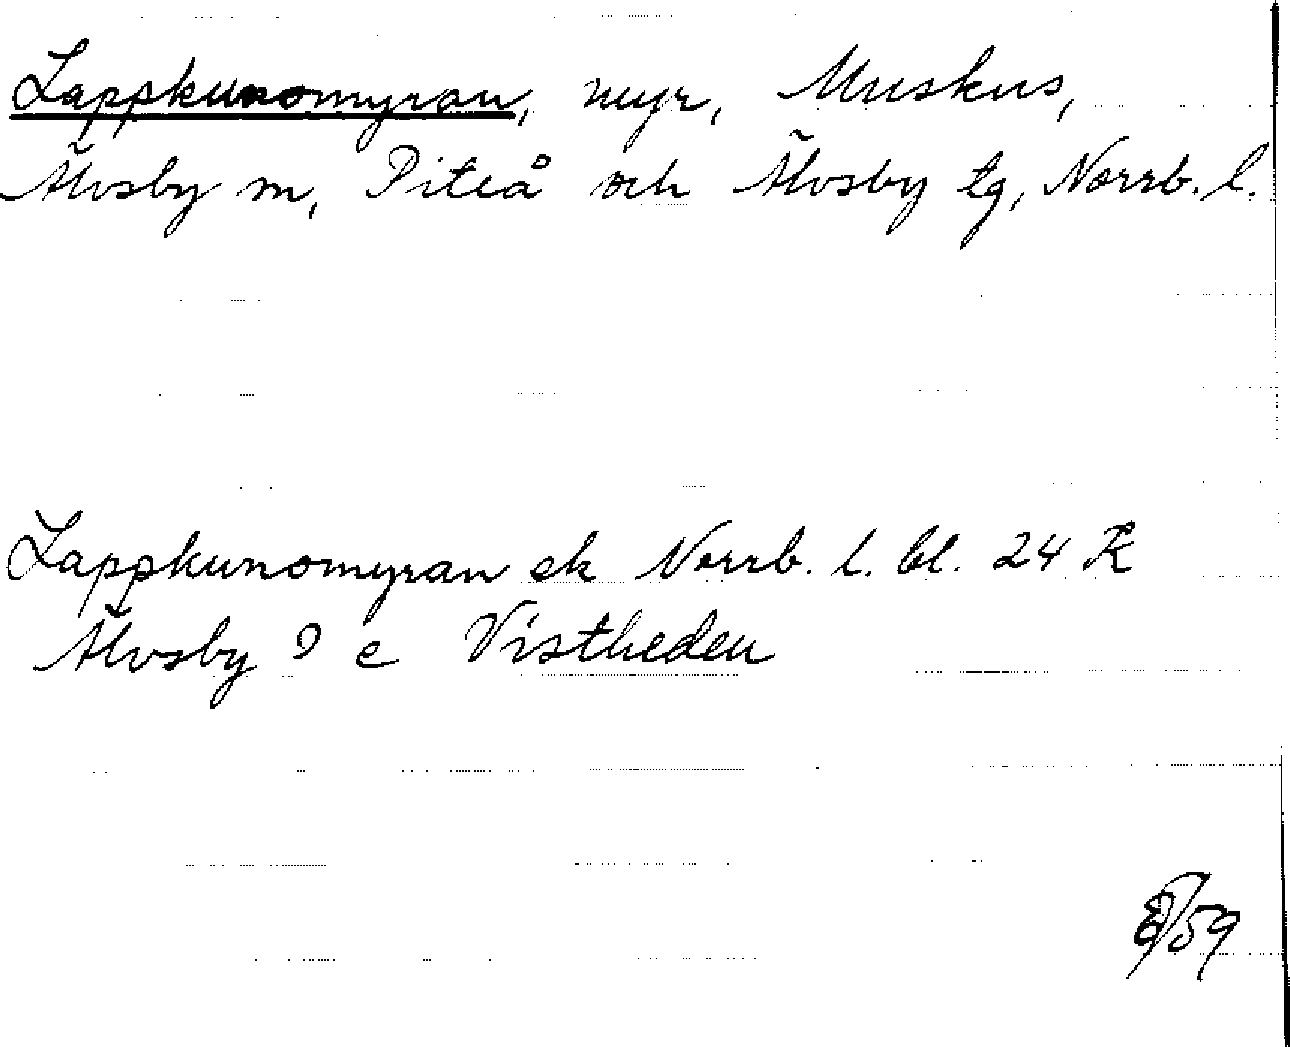 Lappkunomyran, myr, Muskus,
Älvsby m, Piteå och Älvsby tg, Norrb. l.
Lappkunomyran ek Norrb. l. bl. 24 K
Älvsby 9 e Vistheden
/59